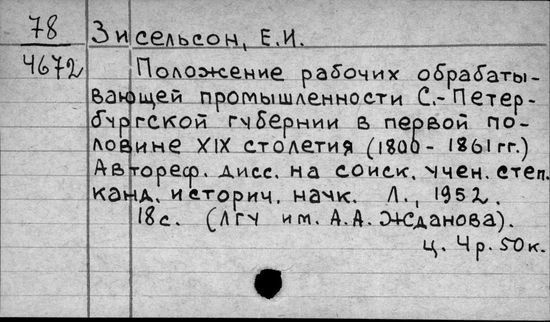 78 Зисельсон, Е.И.
4672 Положение рабочих обрабаты-
вающей промышленности С.-Петер-
бургской губернии в первой по-
ловине XIX столетия (1800 - 1861 гг.)
Автореф. дисс. на соиск. учен. степ.
канд. историч. наук. Л., 1952.
18 с. (ЛГУ им. А.А. Жданова).
ц. 4 р. 50 к.